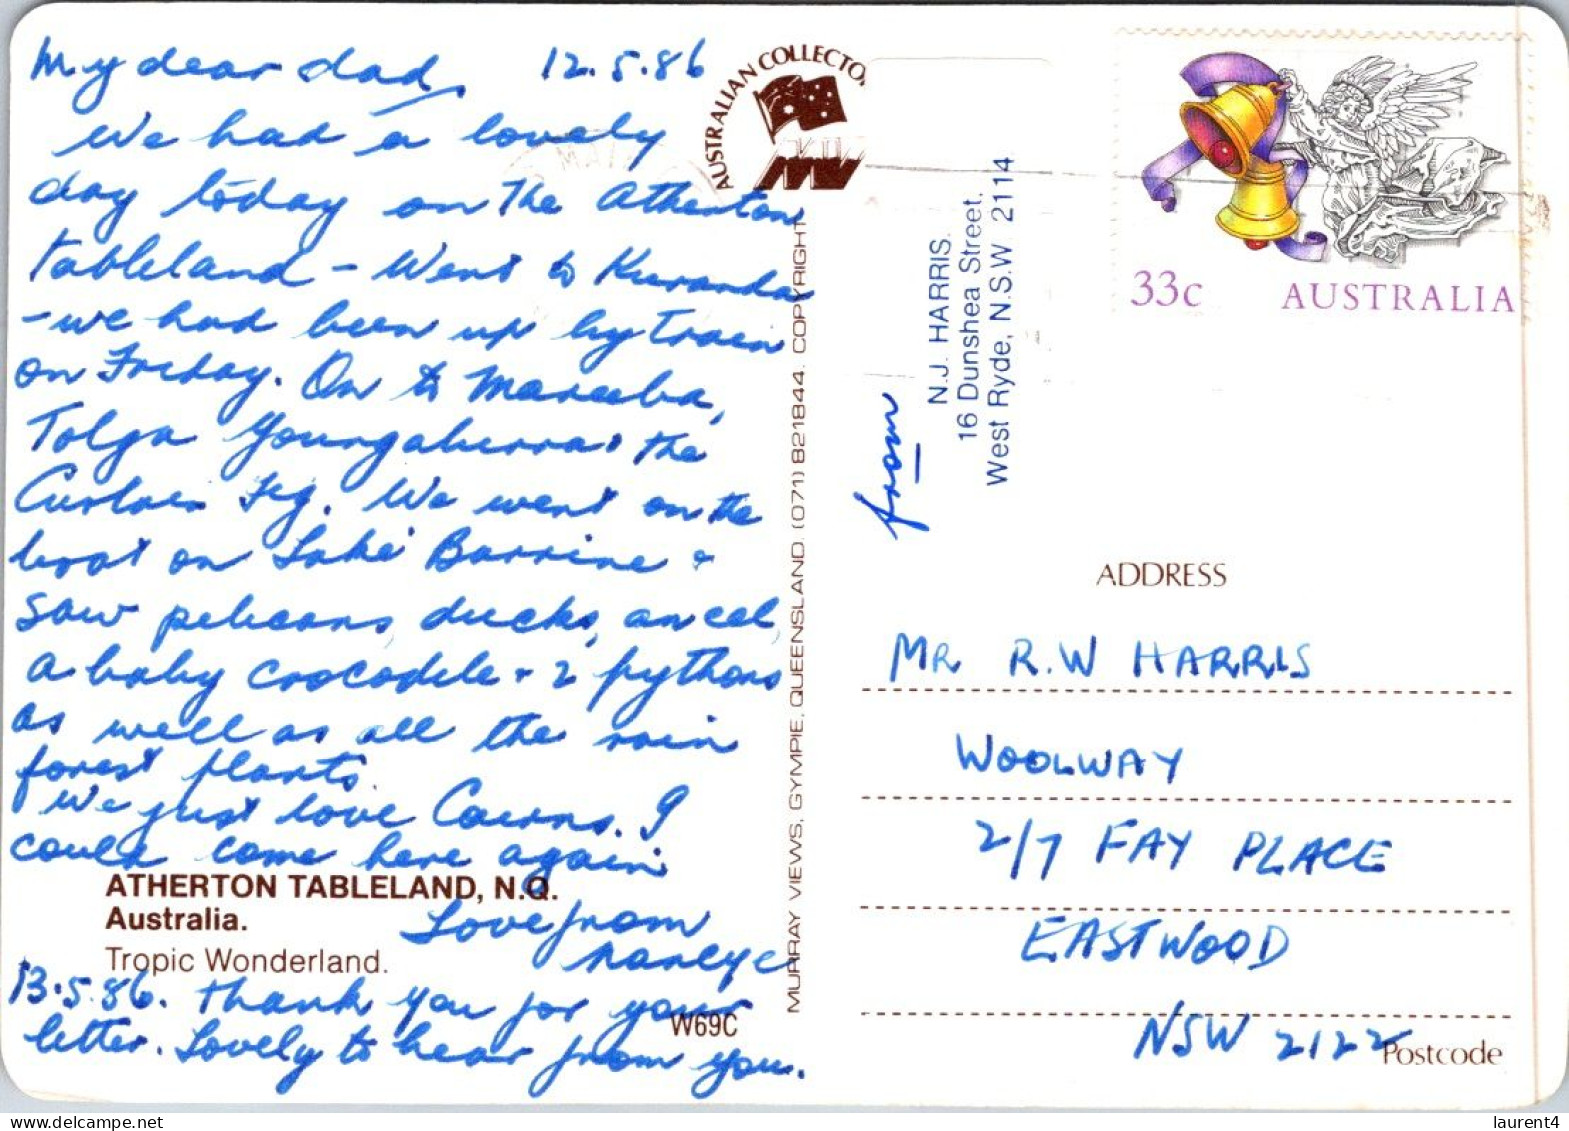 My dear dad, 12.5.86
We had a lovely
day today on the Atherton
Tableland - Went to Kuranda
- we had been up by train
on Friday. On to Mareeba,
Tolga Youngaburra & the
Curtain Fig. We went on the
boat on Lake Barrine &
saw pelicans, ducks, an eel,
a baby crocodile & 2 pythons
as well as all the rain
forest plants.
We just love Cairns. I
could come here again
ATHERTON TABLELAND, N.Q.
Australia.
Love from
Tropic Wonderland.
13.5.86. Thank you for your
letter. Lovely to hear from you.
W69C
AUSTRALIAN COLLECTO
MV
MURRAY VIEWS, GYMPIE, QUEENSLAND. (071) 821844. COPYRIGHT
from
N.J. HARRIS.
16 Dunshea Street,
West Ryde, N.S.W 2114
33c AUSTRALIA
ADDRESS
MR R.W HARRIS
WOOLWAY
2/7 FAY PLACE
EASTWOOD
NSW 2122
Postcode
laurent4